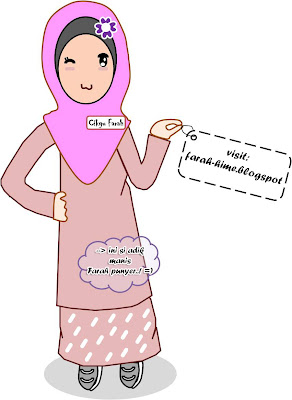 Cikgu Farah
visit:
farah-hime.blogspot
--> ini si adik
manis
Farah punyer..! =)